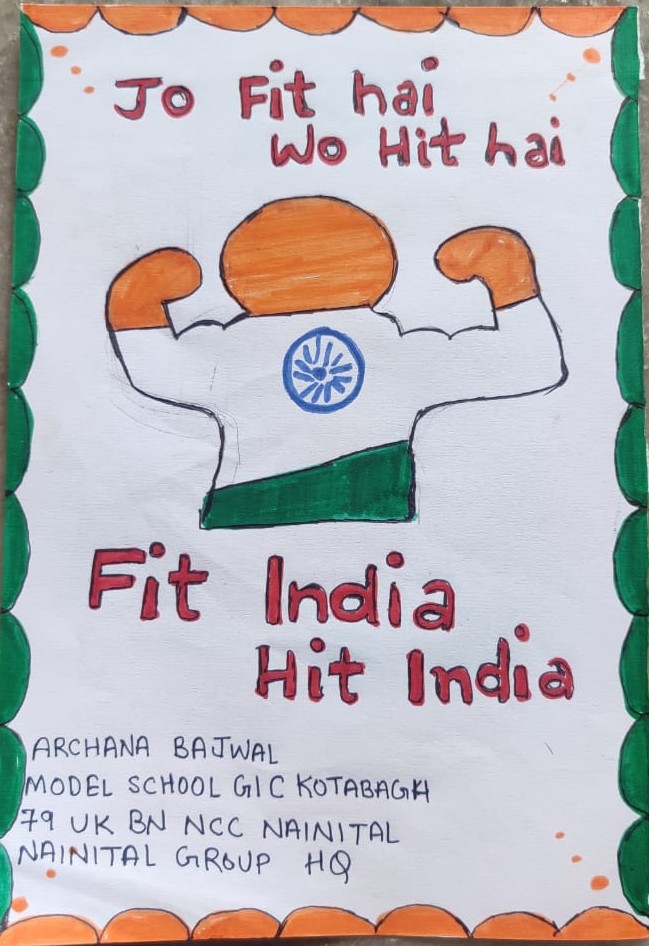 Jo Fit hai
Wo Hit hai
Fit India
Hit India
ARCHANA BAJWAL
MODEL SCHOOL GIC KOTABAGH
79 UK BN NCC NAINITAL
NAINITAL GROUP HQ